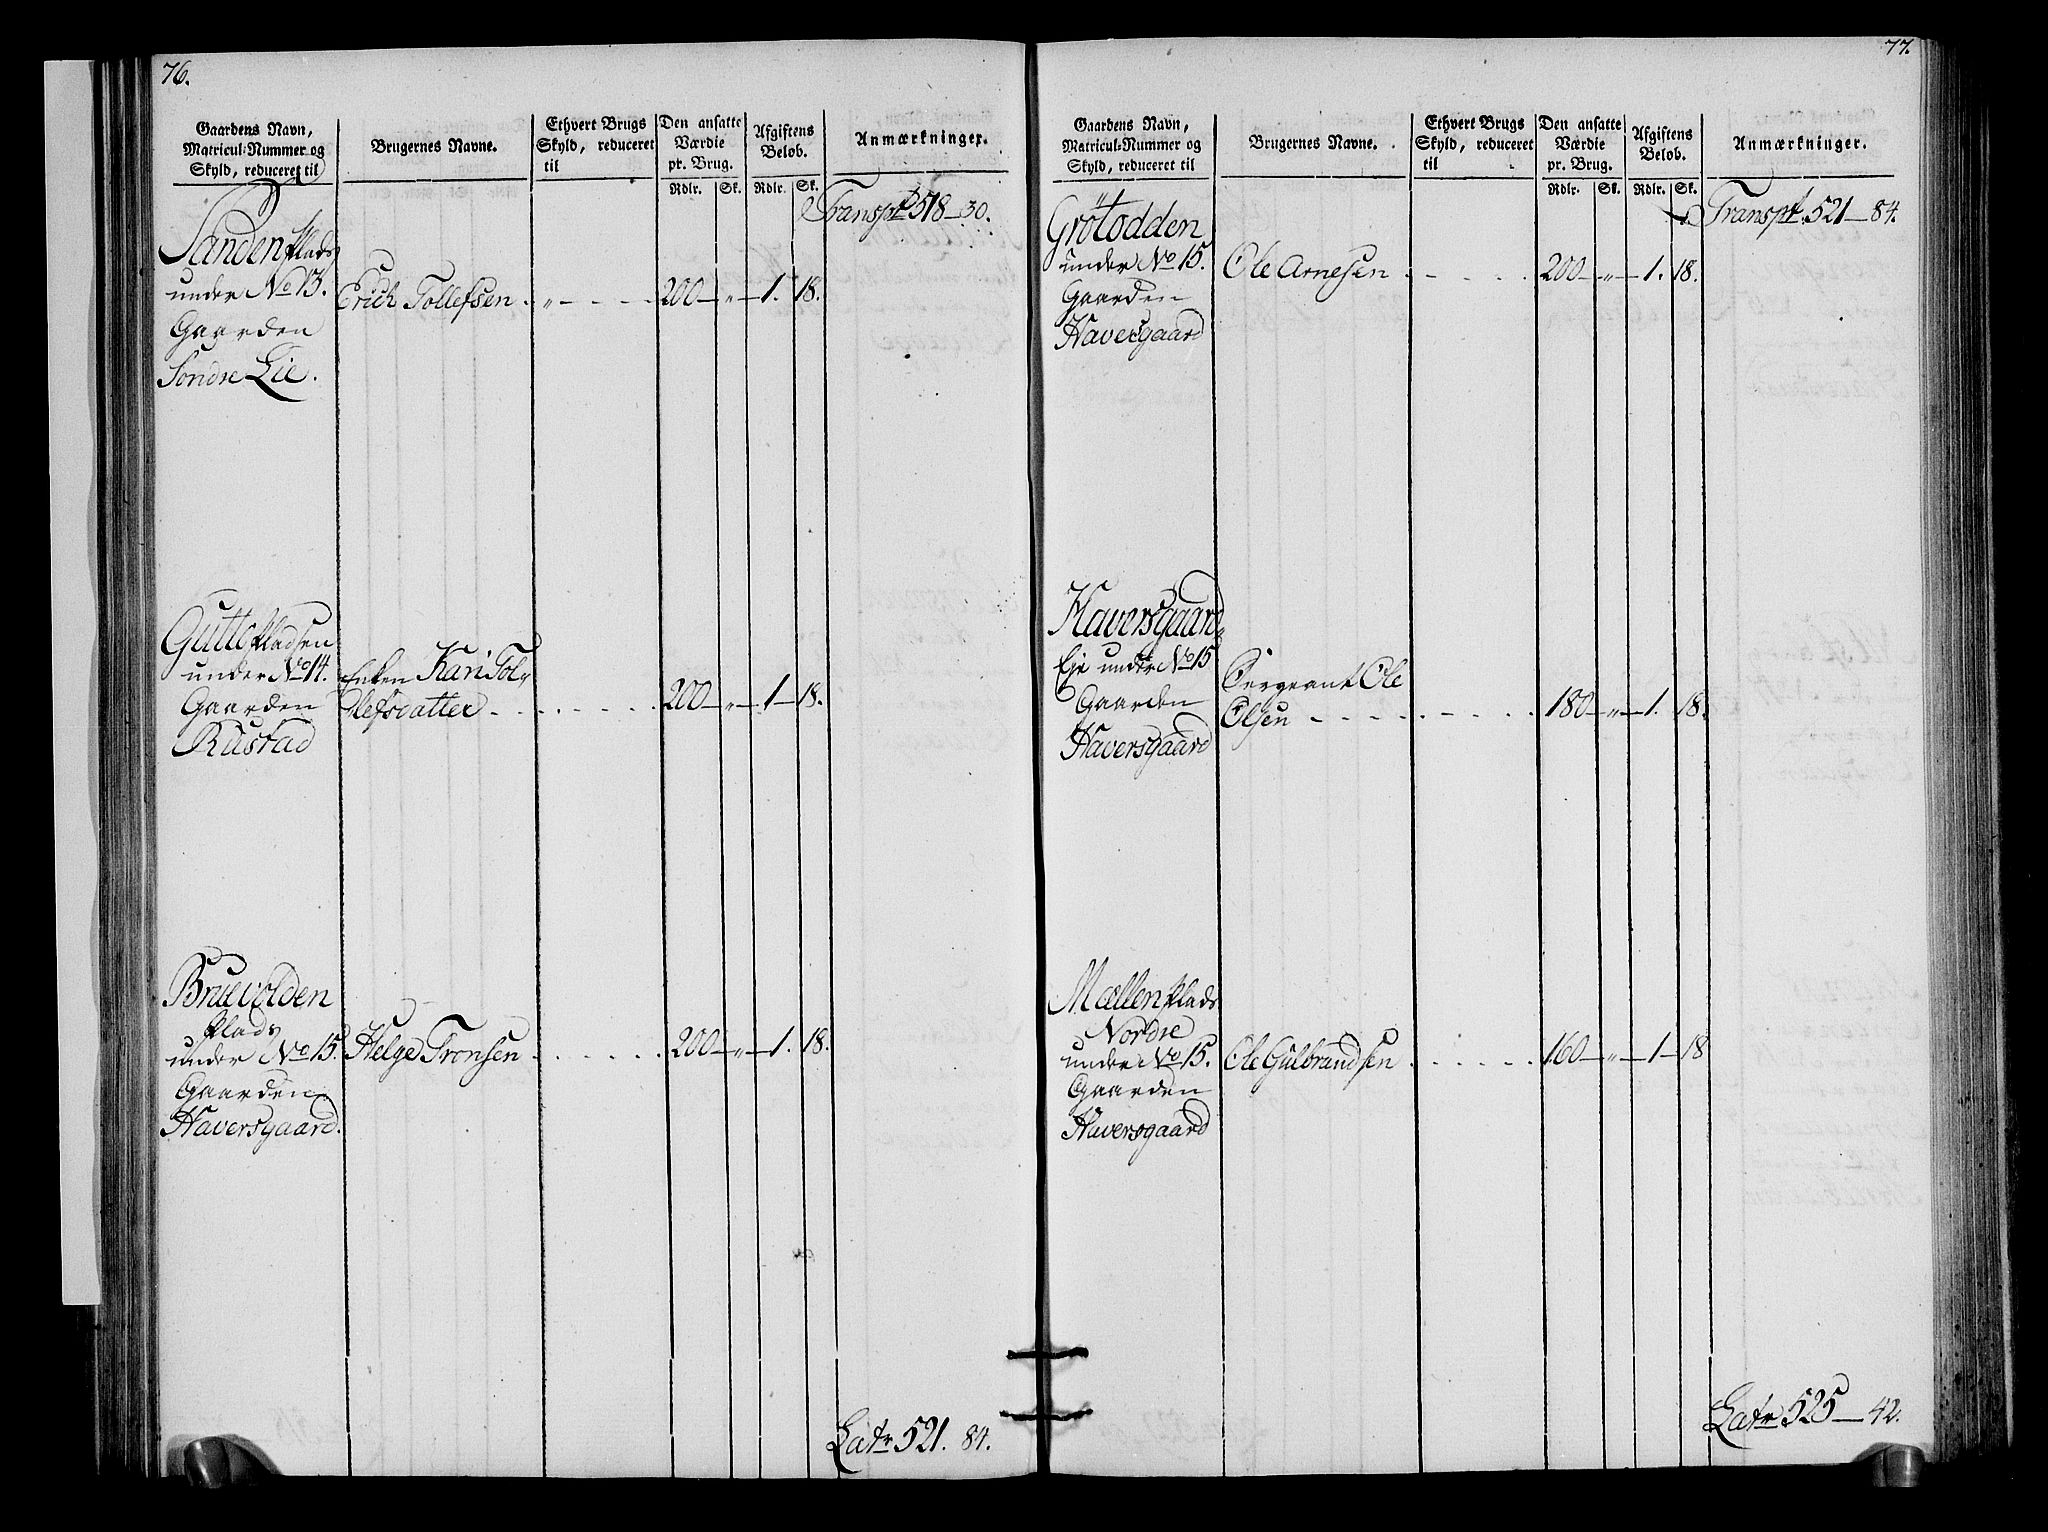 76.
Gaardens Navn,
Matricul-Nummer og
Skyld, reduceret til
Brugernes Navne.
Ethvert Brugs
Skyld, reduceret
til
Den ansatte
Værdie
pr. Brug.
Afgiftens
Beløb.
Anmærkninger.
Rdlr. Sk. Rdlr. Sk.
Transpt 518 — 30.
Sanden Plads
under No 13. Erich Tollefsen . „ - - - - 200 — „ — 1. 18.
Gaarden
Söndre Lie.
Gutte Pladsen
under No 14. Enken Kari Tol„
Gaarden lefsdatter - - - - - - 200 — „ — 1 — 18.
Rustad
Bruevolden
Plads
under No 15. Helge Tronsen - - - - - 200 — „ — 1. 18.
Gaarden
Haversgaard.
Latr 521. 84.
77.
Gaardens Navn,
Matricul-Nummer og
Skyld, reduceret til
Brugernes Navne.
Ethvert Brugs
Skyld, reduceret
til
Den ansatte
Værdie
pr. Brug.
Afgiftens
Beløb.
Anmærkninger.
Rdlr. Sk. Rdlr. Sk.
Transpt. 521 — 84.
Grötodden
under No 15. Ole Arnesen - - - - - 200 — „ — 1. 18.
Gaarden
Haversgaard
Haversgaard„
Eje under No 15 Sergeant Ole
Gaarden Olsen - - - - - - - - 180 — „ — 1. 18.
Haversgaard
Mællen Plads
Nordre
under No 15. Ole Gulbrandsen - - - - - 160 — „ — 1 — 18
Gaarden
Haversgaard
Latr 525 — 42.